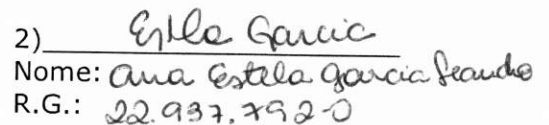 2) Estela Garcia
Nome: Ana Estela Garcia Leandro
R.G.: 22.937.792-0